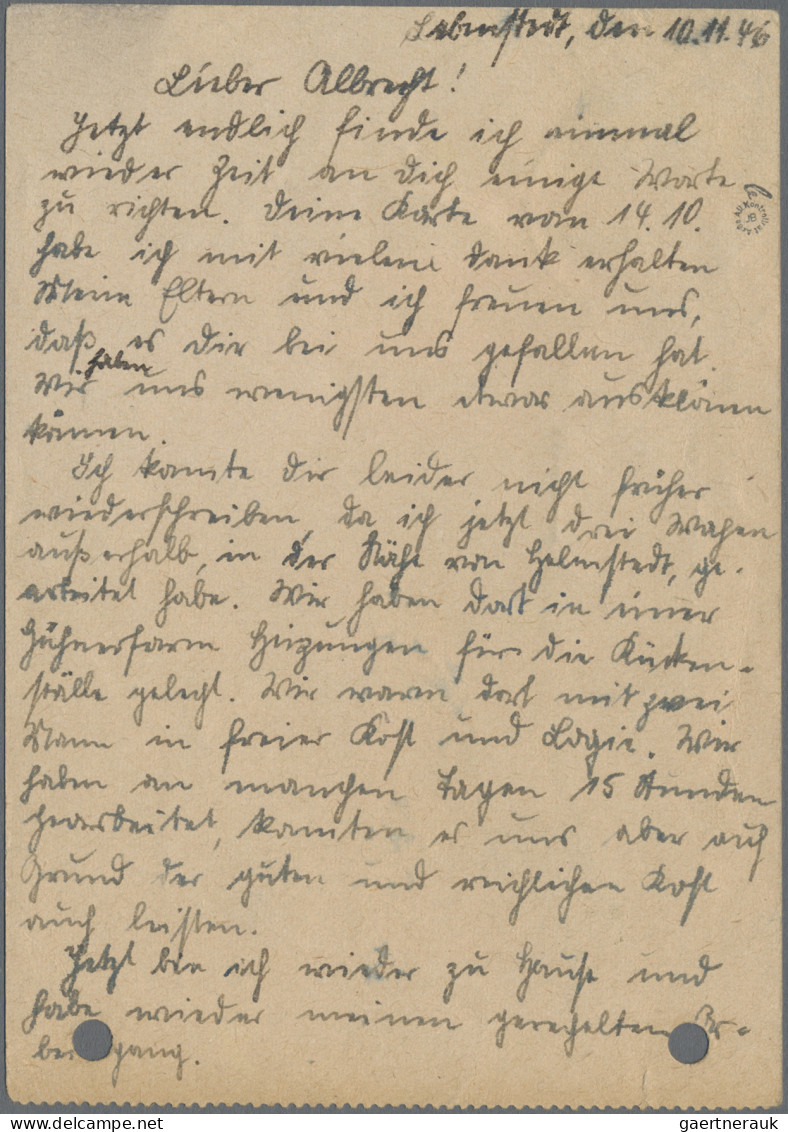 Lebenstedt, den 10.11.46
Lieber Albrecht!
Jetzt endlich finde ich einmal
wieder Zeit an dich einige Worte
zu richten. Deine Karte vom 14.10.
habe ich mit vielem dank erhalten
Meine Eltern und ich freuen uns,
daß es dir bei uns gefallen hat.
Wir haben uns wenigsten etwas ausklönen
können.
Ich konnte dir leider nicht früher
wiederschreiben, da ich jetzt drei Wochen
außerhalb, in der Nähe von Helmstedt, ge-
arbeitet habe. Wir haben dort in einer
Hühnerfarm Heizungen für die Kücken-
ställe gelegt. Wir waren dort mit zwei
Mann in freier Kost und Logie. Wir
haben an manchen Tagen 15 Stunden
gearbeitet, konnten es uns aber auf
Grund der guten und reichlichen Kost
auch leisten.
Jetzt bin ich wieder zu Hause und
habe wieder meinen geregelten Ar-
beitsgang.
gaertnerauk